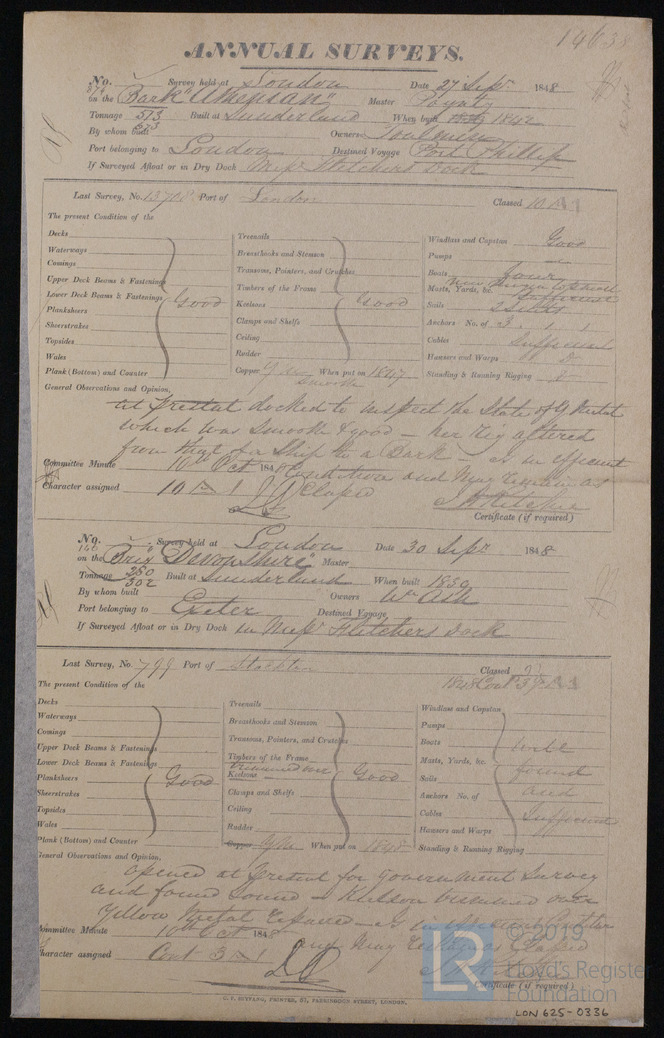 14638
ANNUAL SURVEYS.
No. Survey held at London Date 27 Sepr 1848
on the Bark "Athenian" Master Poynty
Tonnage 573 Built at Sunderland When built 1842
573
By whom built Owners Toulmin
Port belonging to London Destined Voyage Port Phillip
If Surveyed Afloat or in Dry Dock Messrs Fletchers Dock
Last Survey, No. Port of London Classed 10 A1
The present Condition of the
Decks
Waterways
Comings
Upper Deck Beams & Fastenings
Lower Deck Beams & Fastenings Good
Planksheers
Sheerstrakes
Topsides
Wales
Plank (Bottom) and Counter
Treenails
Breasthooks and Stemson
Transoms, Pointers, and Crutches
Timbers of the Frame
Keelsons Good
Clamps and Shelfs
Ceiling
Rudder
Copper When put on 1847
Smooth
Windlass and Capstan Good
Pumps
Boats four
Masts, Yards, &c.
Sufficient
Sails 2 Suits
Anchors No. of 3 . 1 . 1
Cables Sufficient
Hawsers and Warps Do
Standing & Running Rigging
General Observations and Opinion,
at Present docked to inspect the State of Y Metal
which was Smooth & good — her Rig altered
from that of a Ship to a Bark — Is in efficient
Committee Minute 10th Oct 1848 Condition and May Remain as
Character assigned 10 A 1 Classed
Certificate (if required)
No. Survey held at London Date 30 Sepr 1848
on the Brig "Devonshire" Master
Tonnage 250 Built at Sunderland When built 1839
302
By whom built Owners Wm Ash
Port belonging to Exeter Destined Voyage
If Surveyed Afloat or in Dry Dock in Messrs Fletchers Dock
Last Survey, No. 799 Port of Stockton Classed
1848 Cont 3 A 1
The present Condition of the
Decks
Waterways
Comings
Upper Deck Beams & Fastenings
Lower Deck Beams & Fastenings
Planksheers Good
Sheerstrakes
Topsides
Wales
Plank (Bottom) and Counter
Treenails
Breasthooks and Stemson
Transoms, Pointers, and Crutches
Timbers of the Frame
Keelsons Good
Clamps and Shelfs
Ceiling
Rudder
Copper When put on 1848
Windlass and Capstan
Pumps
Boats Well
Masts, Yards, &c.
Sails found
Anchors No. of and
Cables Sufficient
Hawsers and Warps
Standing & Running Rigging
General Observations and Opinion,
opened at Present for Government Survey
and found Sound — Keelson over
Yellow Metal Repaired — Is in efficient
Committee Minute 10th Oct 1848 and May
Character assigned Cont 3 A 1
Certificate (if required)
C. F. STEVENS, PRINTER, 37, STREET, LONDON.
LR © 2019
Lloyd's Register
Foundation
LON 625-0336